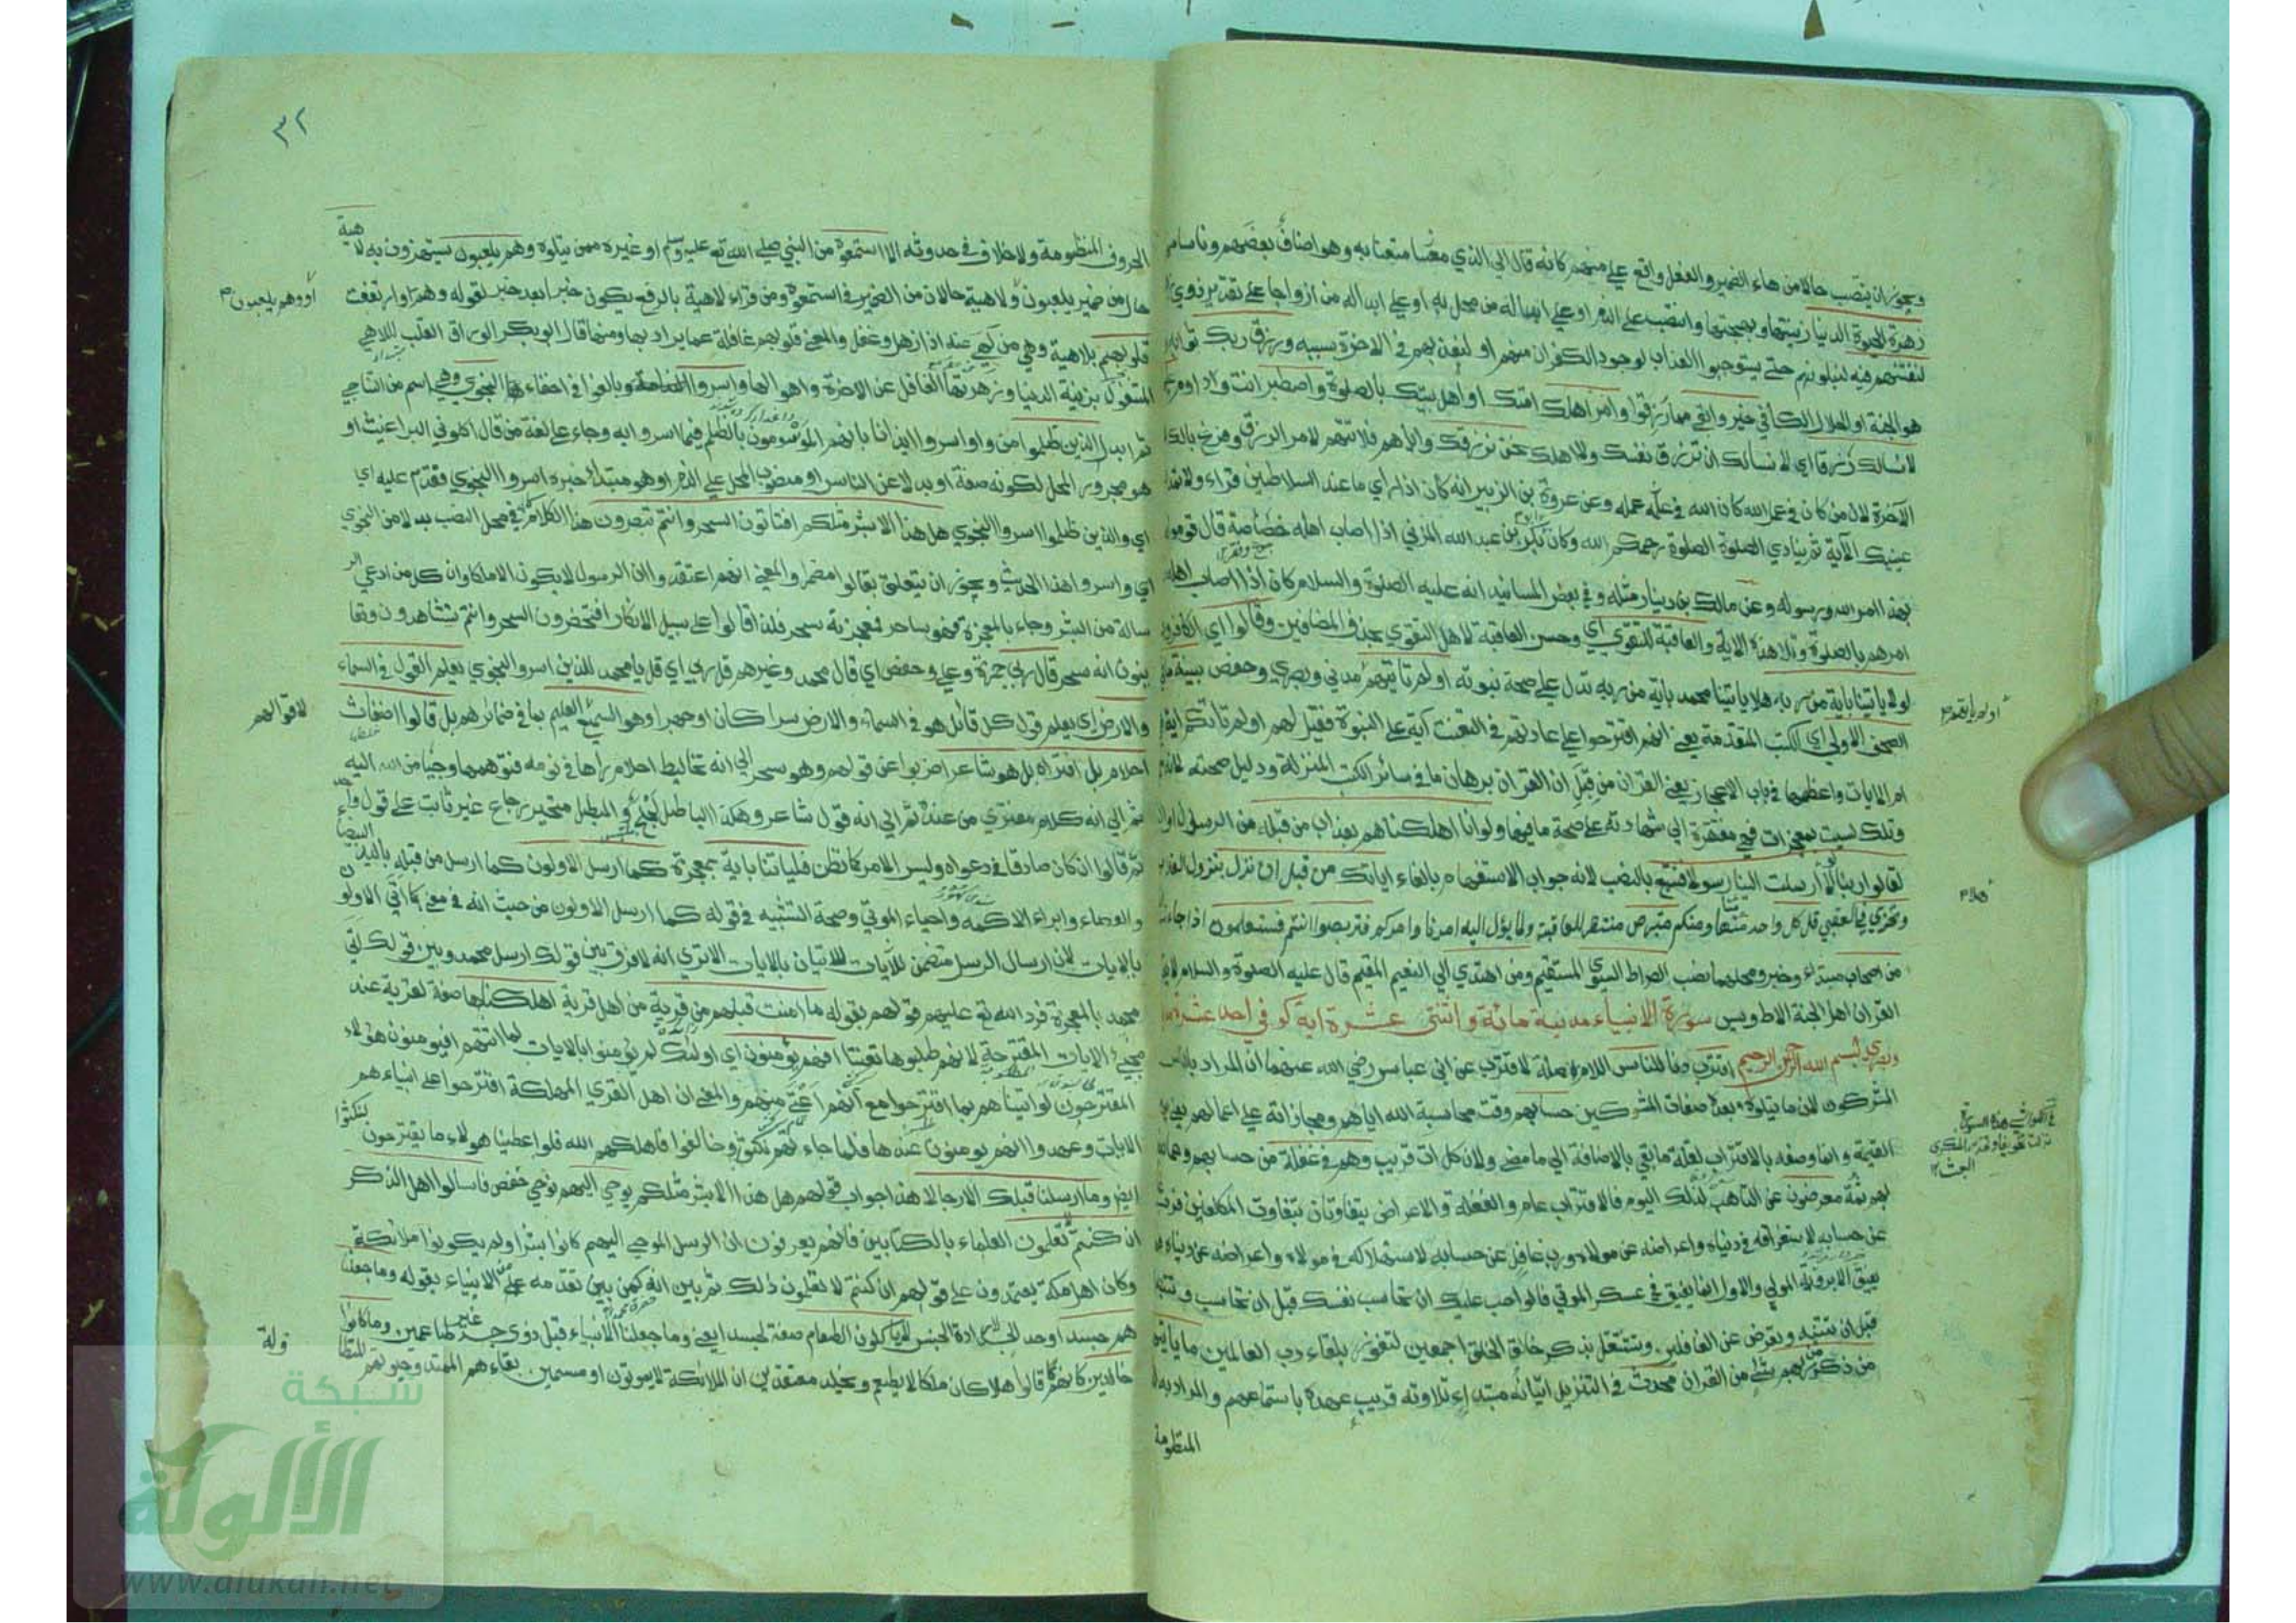 ويجوز ان ينتصب حالا من هاء الضمير والفعل واقع على منهم كانه قال الى الذي متعنا به وهو اصناف بعضهم وناسا منهم
زهرة الحيوة الدنيا زينتها وبهجتها وانتصب على الذم او على ابداله من محل به او على ابداله من ازواجا على تقدير ذوي
لنفتنهم فيه لنبلوهم حتى يستوجبوا العذاب لوجود الكفران منهم او لنعذبهم في الاخرة بسببه ورزق ربك ثوابه
هو الجنة او الحلال الكافي خير وابقى مما رزقوا وامر اهلك امتك او اهل بيتك بالصلوة واصطبر انت وداوم عليها
لا نسالك رزقا اي لا نسالك ان ترزق نفسك ولا اهلك نحن نرزقك واياهم فلا تهتم لامر الرزق وفرغ بالك
الآخرة لان من كان في عمل الله كان الله في عمله وعن عروة بن الزبير انه كان اذا راى ما عند السلاطين قراء ولا تمدن
عينيك الآية ثم ينادي الصلوة الصلوة رحمكم الله وكان بكر بن عبد الله المزني اذا اصاب اهله خصاصة قال قوموا
بهذا امر الله ورسوله وعن مالك بن دينار مثله وفي بعض المسانيد انه عليه الصلوة والسلام كان اذا اصاب اهله
امرهم بالصلوة وتلا هذه الاية والعاقبة للتقوى اي وحسن العاقبة لاهل التقوى بحذف المضافين وقالوا اي الكافرون
لولا ياتينا باية من ربه هلا ياتينا محمد باية من ربه تدل على صحة نبوته اولم تاتهم مدني وبصري وحفص بينة ما في
اولم ياتهم
الصحف الاولى اي الكتب المتقدمة يعني انهم اقترحوا على عادتهم في التعنت آية على النبوة فقيل لهم اولم تاتكم اية
ام الايات واعظمها في باب الاعجاز يعني القرآن من قبل ان القرآن برهان ما في سائر الكتب المنزلة ودليل صحته لانه
وتلك ليست بمعجزات فهي مفتقرة الى شهادته على صحة ما فيها ولو انا اهلكناهم بعذاب من قبله من الرسول او القرآن
لقالوا ربنا لولا ارسلت الينا رسولا فنتبع بالنصب لانه جواب الاستفهام بالفاء اياتك من قبل ان نذل بنزول العذاب
هلا
ونخزى في العقبى قل كل واحد منا ومنكم متربص منتظر للعاقبة ولما يؤل اليه امرنا وامركم فتربصوا انتم فستعلمون اذا جاءت
من اصحاب مبتداء وخبر ومحلهما نصب الصراط السوي المستقيم ومن اهتدى الى النعيم المقيم قال عليه الصلوة والسلام لا يقرا
القرآن اهل الجنة الا طه ويس سورة الانبياء مدنية مائة واثنتى عشرة اية كوفي احد عشر
وبصري بسم الله الرحمن الرحيم اقترب دنا للناس اللام صلة لاقترب عن ابن عباس رضي الله عنهما ان المراد بالناس
المشركون لان ما يتلوه بعده صفات المشركين حسابهم وقت محاسبة الله اياهم ومجازاته على اعمالهم يعني
القيمة وانما وصفه بالاقتراب لقلة ما بقي بالاضافة الى ما مضى ولان كل ات قريب وهم في غفلة من حسابهم وعما
بهم ثمة معرضون عن التاهب لذلك اليوم فالاقتراب عام والغفلة والاعراض يتفاوتان بتفاوت المكلفين فرب
عن حسابه لاستغراقه في دنياه واعراضه عن مولاه ورب غافل عن حسابه لاستهلاكه في مولاه واعراضه عن دنياه
يفيق الا برؤية المولى والاول انما يفيق في عسكر الموتى فالواجب عليك ان تحاسب نفسك قبل ان تحاسب وتنتبه
قبل ان تنبه وتعرض عن الغافلين وتشتغل بذكر خالق الخلق اجمعين لتفوز بلقاء رب العالمين ما ياتيهم
من ذكر من ربهم شيء من القرآن محدث في التنزيل اتيانه مبتداء تلاوته قريب عهده باستماعهم والمراد به
المنظومة
٣٢
الحروف المنظومة ولا خلاف في حدوثه الا استمعوه من النبي صلى الله تع عليه وسلم او غيره ممن يتلوه وهم يلعبون يستهزؤن به لاهية
حال من ضمير يلعبون ولاهية حالان من الضمير في استمعوه ومن قراء لاهية بالرفع يكون خبرا بعد خبر لقوله وهم وارتفعت
او وهم يلعبون
قلوبهم بلاهية وهي من لهى عنه اذا ذهل وغفل والمعنى قلوبهم غافلة عما يراد بها ومنها قال ابو بكر الوراق القلب اللاهي
المشغول بزينة الدنيا وزهرتها الغافل عن الاخرة واهوالها واسروا وبالغوا في اخفاء النجوى وهي اسم من التناجي
ثم ابدل الذين ظلموا من واو اسروا ايذانا بانهم الموسومون بالظلم فيما اسروا به وجاء على لغة من قال اكلوني البراغيث او
هو مجرور المحل لكونه صفة او بدلا عن الناس او منصوب المحل على الذم او هو مبتداء خبره اسروا النجوى فقدم عليه اي
اي والذين ظلموا اسروا النجوى هل هذا الا بشر مثلكم افتاتون السحر وانتم تبصرون هذا الكلام في محل النصب بدلا من النجوى
اي واسروا هذا الحديث ويجوز ان يتعلق بقالوا مضمرا والمعنى انهم اعتقدوا ان الرسول لا يكون الا ملكا وان كل من ادعى الر
سالة من البشر وجاء بالمعجزة فهو ساحر ومعجزته سحر فلذا قالوا على سبيل الانكار افتحضرون السحر وانتم تشاهدون وتعا
ينون انه سحر قال ربي حمزة وعلي وحفص اي قال محمد وغيرهم قل ربي اي قل يا محمد للذين اسروا النجوى يعلم القول في السماء
والارض اي يعلم قول كل قائل هو في السماء والارض سرا كان او جهرا وهو السميع العليم بما في ضمائرهم بل قالوا اضغاث
لاقوالهم
احلام بل افتراه بل هو شاعر اضربوا عن قولهم وهو سحر الى انه تخاليط احلام راها في نومه فتوهمها وحيا من الله اليه
ثم الى انه كلام مفترى من عنده ثم الى انه قول شاعر وهكذا الباطل لجلج والمبطل متحير رجاع غير ثابت على قول واحد
ثم قالوا ان كان صادقا في دعواه وليس الامر كما نظن فلياتنا باية بمعجزة كما ارسل الاولون كما ارسل من قبله باليد البيضاء
والعصاء وابراء الاكمه واحياء الموتى وصحة التشبيه في قوله كما ارسل الاولون من حيث انه في معنى كما اتى الاولون
بالايات لان ارسال الرسل متضمن للاتيان بالايات الا ترى انه لا فرق بين قولك ارسل محمد وبين قولك اتى
محمد بالمعجزة فرد الله تع عليهم قولهم بقوله ما امنت قبلهم من قرية من اهل قرية اهلكناها صفة لقرية عند
مجيء الايات المقترحة لانهم طلبوها تعنتا افهم يؤمنون اي اولئك لم يؤمنوا بالايات لما اتتهم افيؤمنون هؤلاء
المقترحون لو اتيناهم بما اقترحوا مع انهم اعتى منهم والمعنى ان اهل القرى المهلكة اقترحوا على انبياءهم
الايات وعهدوا انهم يومنون عندها فلما جاءتهم نكثوا وخالفوا فاهلكهم الله فلو اعطينا هؤلاء ما يقترحون لنكثوا
ايض وما ارسلنا قبلك الا رجالا هذا جواب قولهم هل هذا الا بشر مثلكم يوحى اليهم نوحي حفص فاسالوا اهل الذكر
ان كنتم لا تعلمون العلماء بالكتابين فانهم يعرفون ان الرسل الموحى اليهم كانوا بشرا ولم يكونوا ملائكة
وكان اهل مكة يعتمدون على قولهم ان كنتم لا تعلمون ذلك ثم بين انه كمن تقدمه من الانبياء بقوله وما جعلنا
هم جسدا وحد الجسد لارادة الجنس لا ياكلون الطعام صفة لجسدا يعني وما جعلنا الانبياء قبل ذوي جسد غير طاعمين وما كانوا
خالدين كانهم قالوا هلا كان ملكا لا يطعم ويخلد معتقدين ان الملائكة لا يموتون او مسمين بقاءهم الممتد وحيوتهم المتطا
ولة
شبكة
الألوكة
www.alukah.net